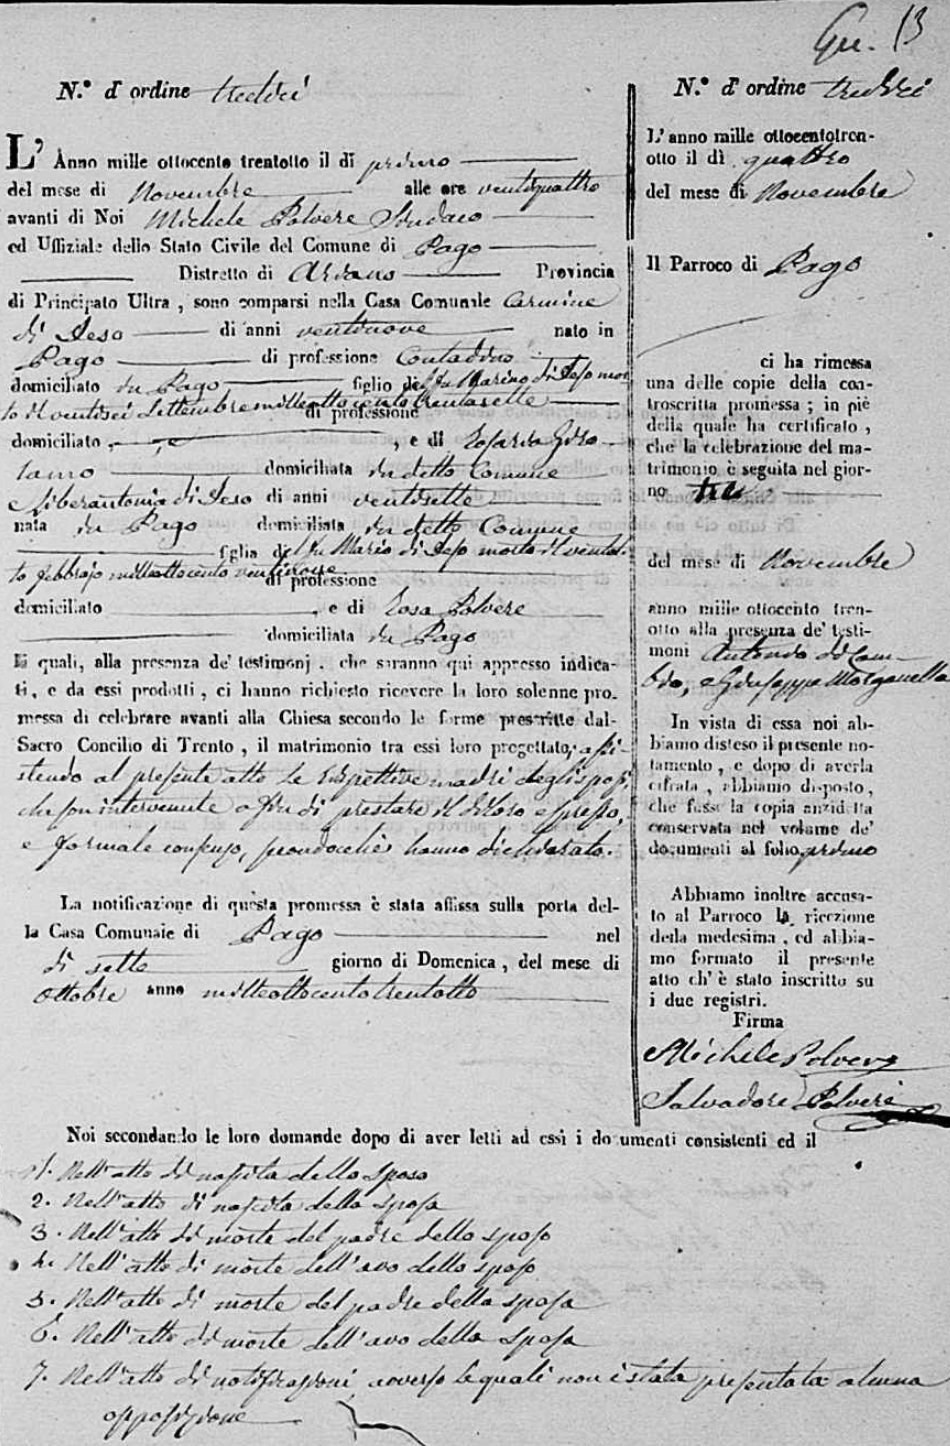 Gu. 13
N.º d'ordine tredici
L' Anno mille ottocento trentotto il dì primo
del mese di Novembre alle ore ventiquattro
avanti di Noi Michele Polvere Sindaco
ed Uffiziale dello Stato Civile del Comune di Pago
Distretto di Ariano Provincia
di Principato Ultra, sono comparsi nella Casa Comunale Carmine
di Ieso di anni ventinove nato in
Pago di professione Contadino
domiciliato in Pago figlio del fu Marino di Ieso mor
to il ventisei Settembre mille ottocento trentasette
di professione
domiciliato , e di Rosaria Giro
lamo domiciliata in detto Comune
e Liberantonia di Ieso di anni ventisette
nata in Pago domiciliata in detto Comune
figlia del fu Mario di Ieso morto il ventot
to febbrajo mille ottocento ventinove
di professione
domiciliato , e di Rosa Polvere
domiciliata in Pago
I quali, alla presenza de' testimonj, che saranno qui appresso indica-
ti, e da essi prodotti, ci hanno richiesto ricevere la loro solenne pro-
messa di celebrare avanti alla Chiesa secondo le forme prescritte dal-
Sacro Concilio di Trento, il matrimonio tra essi loro progettato, assi-
stendo al presente atto le rispettive madri degli sposi,
che son intervenute a fin di prestare il di loro espresso,
e formale consenso, secondochè hanno dichiarato.
La notificazione di questa promessa è stata affissa sulla porta del-
la Casa Comunale di Pago nel
dì sette giorno di Domenica, del mese di
Ottobre anno mille ottocento trentotto
N.º d'ordine tredici
L'anno mille ottocentotren-
otto il dì quattro
del mese di Novembre
Il Parroco di Pago
ci ha rimessa
una delle copie della con-
troscritta promessa; in piè
della quale ha certificato,
che la celebrazione del ma-
trimonio è seguita nel gior-
no tre
del mese di Novembre
anno mille ottocento tren-
otto alla presenza de' testi-
moni Antonio di
e Giuseppe Morganella
In vista di essa noi ab-
biamo disteso il presente no-
tamento, e dopo di averla
cifrata, abbiamo disposto,
che fusse la copia anzidetta
conservata nel volume de'
documenti al folio primo
Abbiamo inoltre accusa-
to al Parroco la ricezione
della medesima, ed abbia-
mo formato il presente
atto ch' è stato inscritto su
i due registri.
Firma
Michele Polvere
Salvadore Polvere
Noi secondando le loro domande dopo di aver letti ad essi i documenti consistenti ed il
1. Nell'atto di nascita dello sposo
2. Nell'atto di nascita della sposa
3. Nell'atto di morte del padre dello sposo
4. Nell'atto di morte dell'avo dello sposo
5. Nell'atto di morte del padre della sposa
6. Nell'atto di morte dell'avo della sposa
7. Nell'atto di notificazioni, avverso le quali non è stata presentata alcuna
opposizione